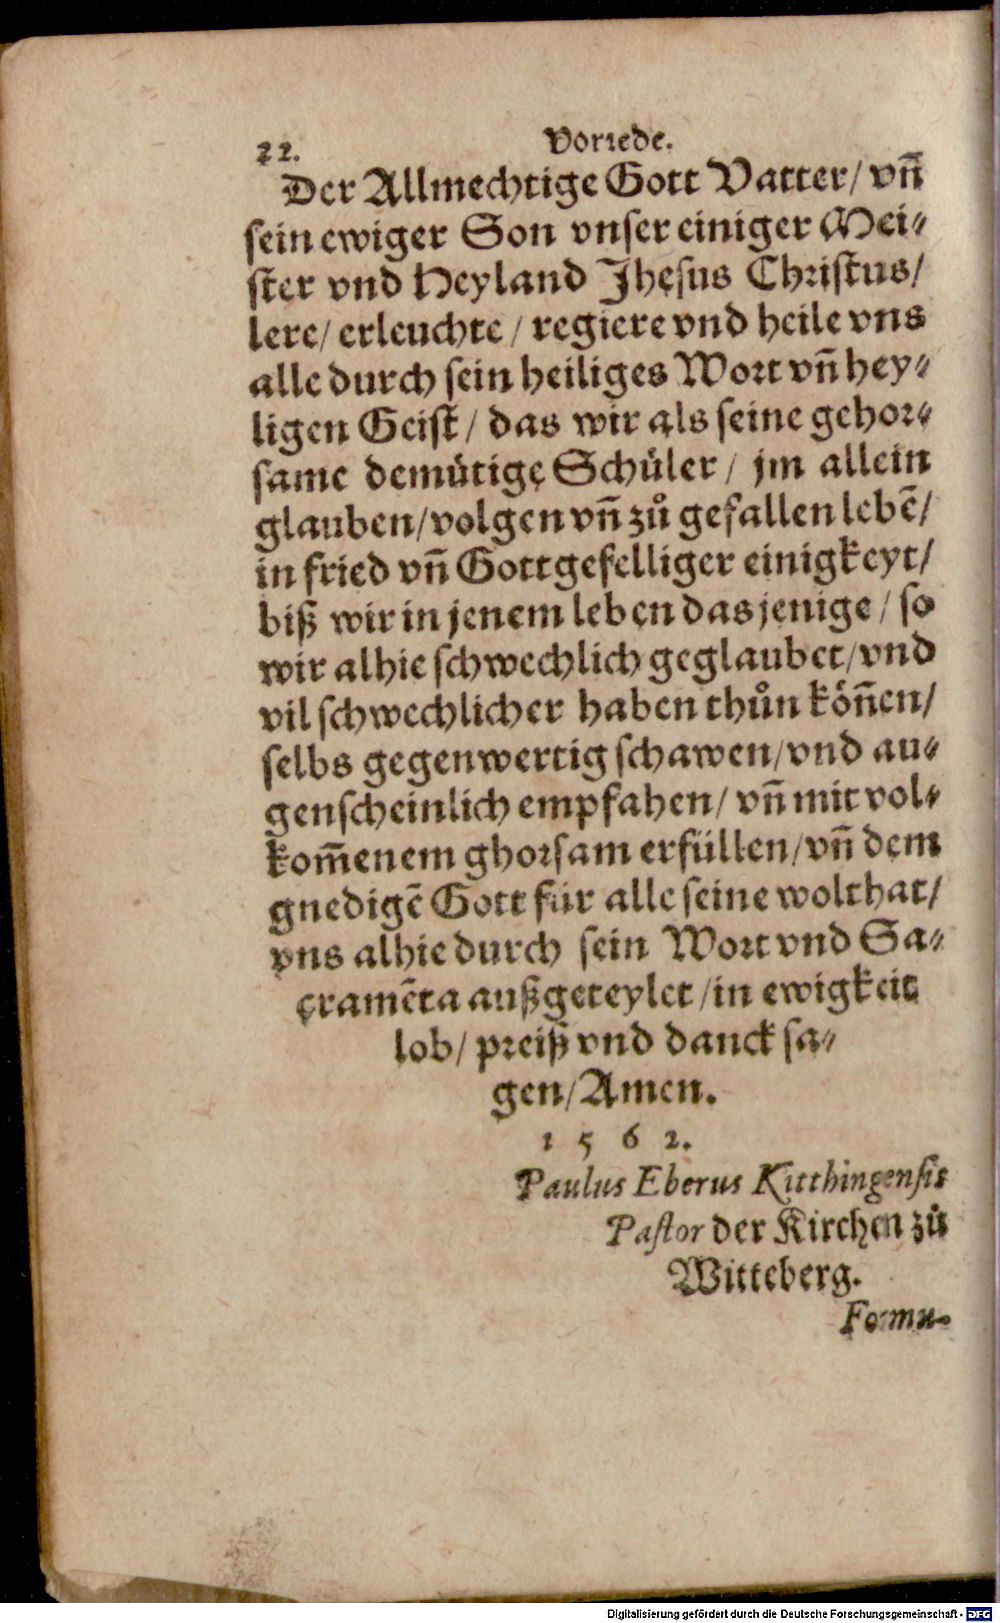 22. Vorrede.
Der Allmechtige Gott Vatter/ vn̄
sein ewiger Son vnser einiger Mei⸗
ster vnd Heyland Jhesus Christus/
lere/ erleuchte/ regiere vnd heile vns
alle durch sein heiliges Wort vn̄ hey⸗
ligen Geist/ das wir als seine gehor⸗
same demütige Schüler/ jm allein
glauben/ volgen vn̄ zů gefallen lebē/
in fried vn̄ Gottgefelliger einigkeyt/
biß wir in jenem leben das jenige/ so
wir alhie schwechlich geglaubet/ vnd
vil schwechlicher haben thůn kön̄en/
selbs gegenwertig schawen/ vnd au⸗
genscheinlich empfahen/ vn̄ mit vol⸗
kom̄enem ghorsam erfüllen/ vn̄ dem
gnedigē Gott für alle seine wolthat/
vns alhie durch sein Wort vnd Sa⸗
cramēta außgeteylet/ in ewigkeit
lob/ preiß vnd danck sa⸗
gen/ Amen.
1 5 6 2.
Paulus Eberus Kitthingensis
Pastor der Kirchen zů
Witteberg.
Formu-
Digitalisierung gefördert durch die Deutsche Forschungsgemeinschaft - DFG